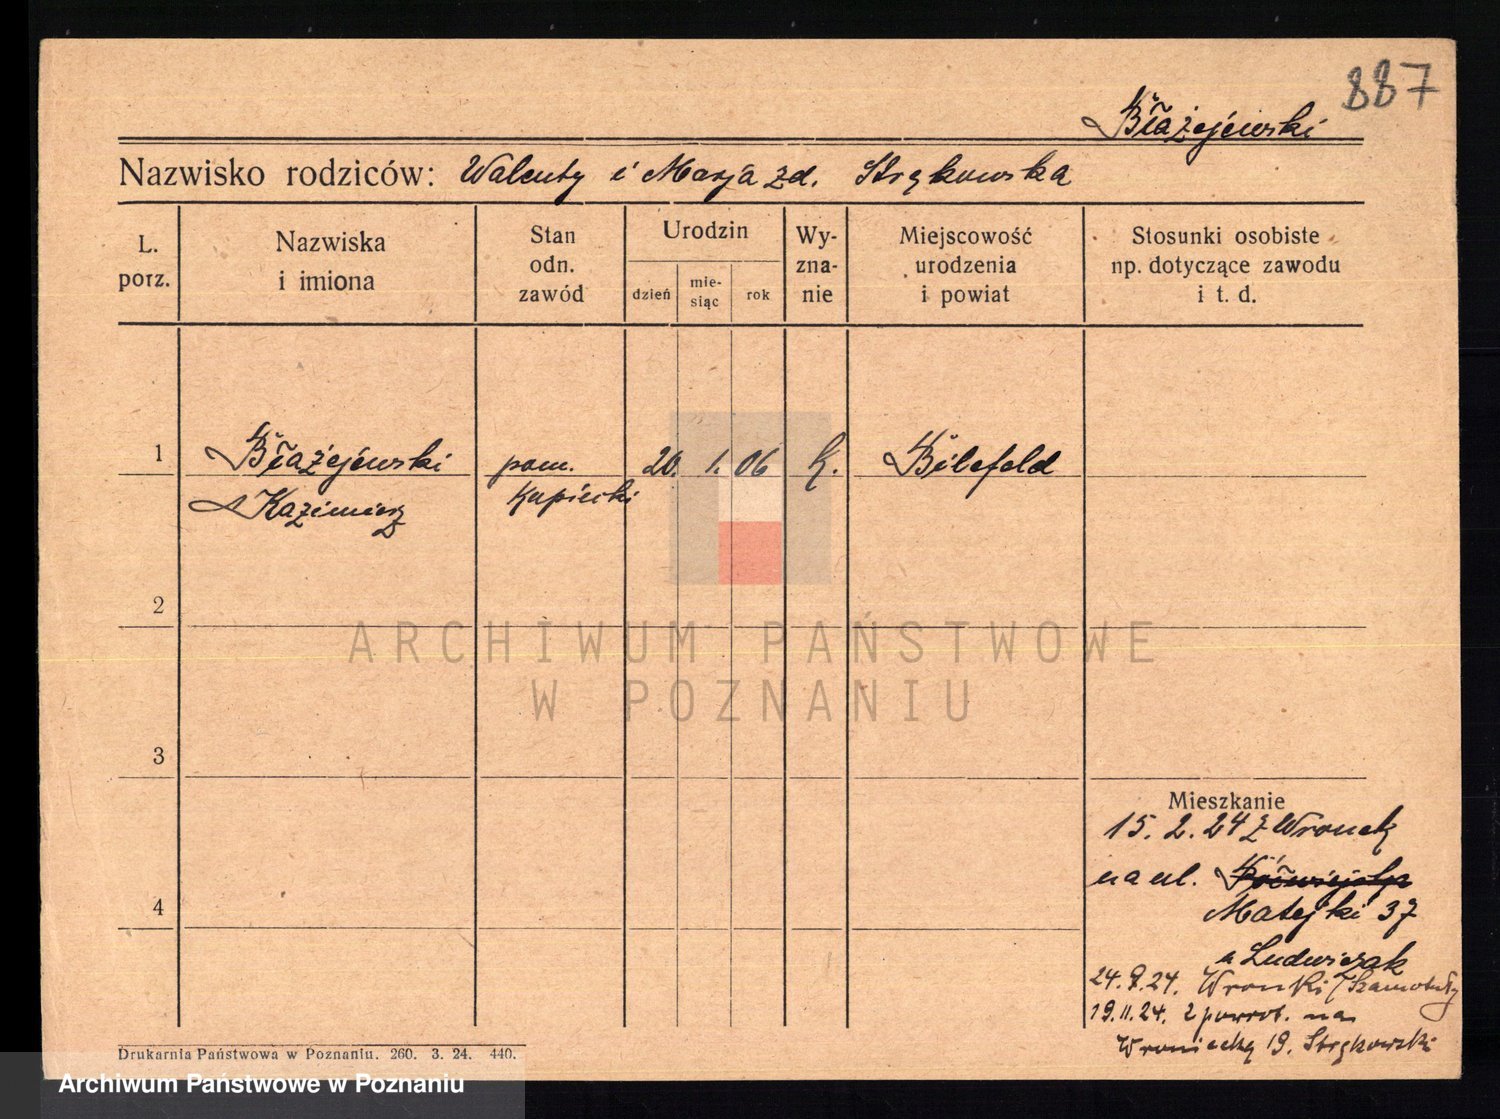 887
Błażejewski
Nazwisko rodziców: Walenty i Marja zd. Strykowska
L. porz.
Nazwiska i imiona
Stan odn. zawód
Urodzin
dzień
mie-siąc
rok
Wy-zna-nie
Miejscowość urodzenia i powiat
Stosunki osobiste np. dotyczące zawodu i t. d.
1 Błażejewski pom. 20. 1. 06 k. Bilefeld
Kazimierz kupiecki
2
ARCHIWUM PAŃSTWOWE
W POZNANIU
3
Mieszkanie
15. 2. 24 z Wronek
na ul.
4 Matejki 37
u Ludwiczak
24.9.24. Wronki / Szamotuły
19.11.24. z powrot. na
Wroniecką 19. Strykowski
Drukarnia Państwowa w Poznaniu. 260. 3. 24. 440.
Archiwum Państwowe w Poznaniu